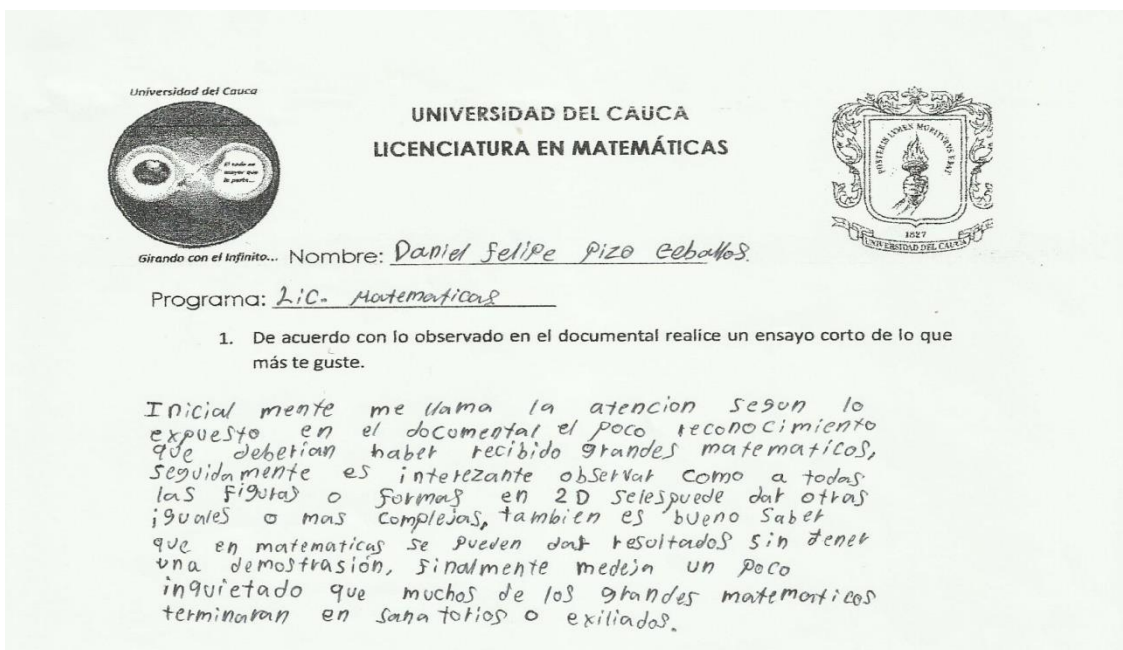 Universidad del Cauca
UNIVERSIDAD DEL CAUCA
LICENCIATURA EN MATEMÁTICAS
El todo es
mayor que
la parte...
POSTERIS LVMEN MORITVRVS EDAT
1827
UNIVERSIDAD DEL CAUCA
Girando con el Infinito...
Nombre: Daniel Felipe Pizo Ceballos.
Programa: Lic. Matematicas
1. De acuerdo con lo observado en el documental realice un ensayo corto de lo que
más te guste.
Inicial mente me llama la atencion segun lo
expuesto en el documental el poco reconocimiento
que deberian haber recibido grandes matematicos,
seguidamente es interezante observar como a todas
las figuras o formas en 2D selespuede dar otras
iguales o mas complejas, tambien es bueno saber
que en matematicas se pueden dar resultados sin tener
una demostrasión, finalmente medeja un poco
inquietado que muchos de los grandes matematicos
terminaran en sana torios o exiliados.